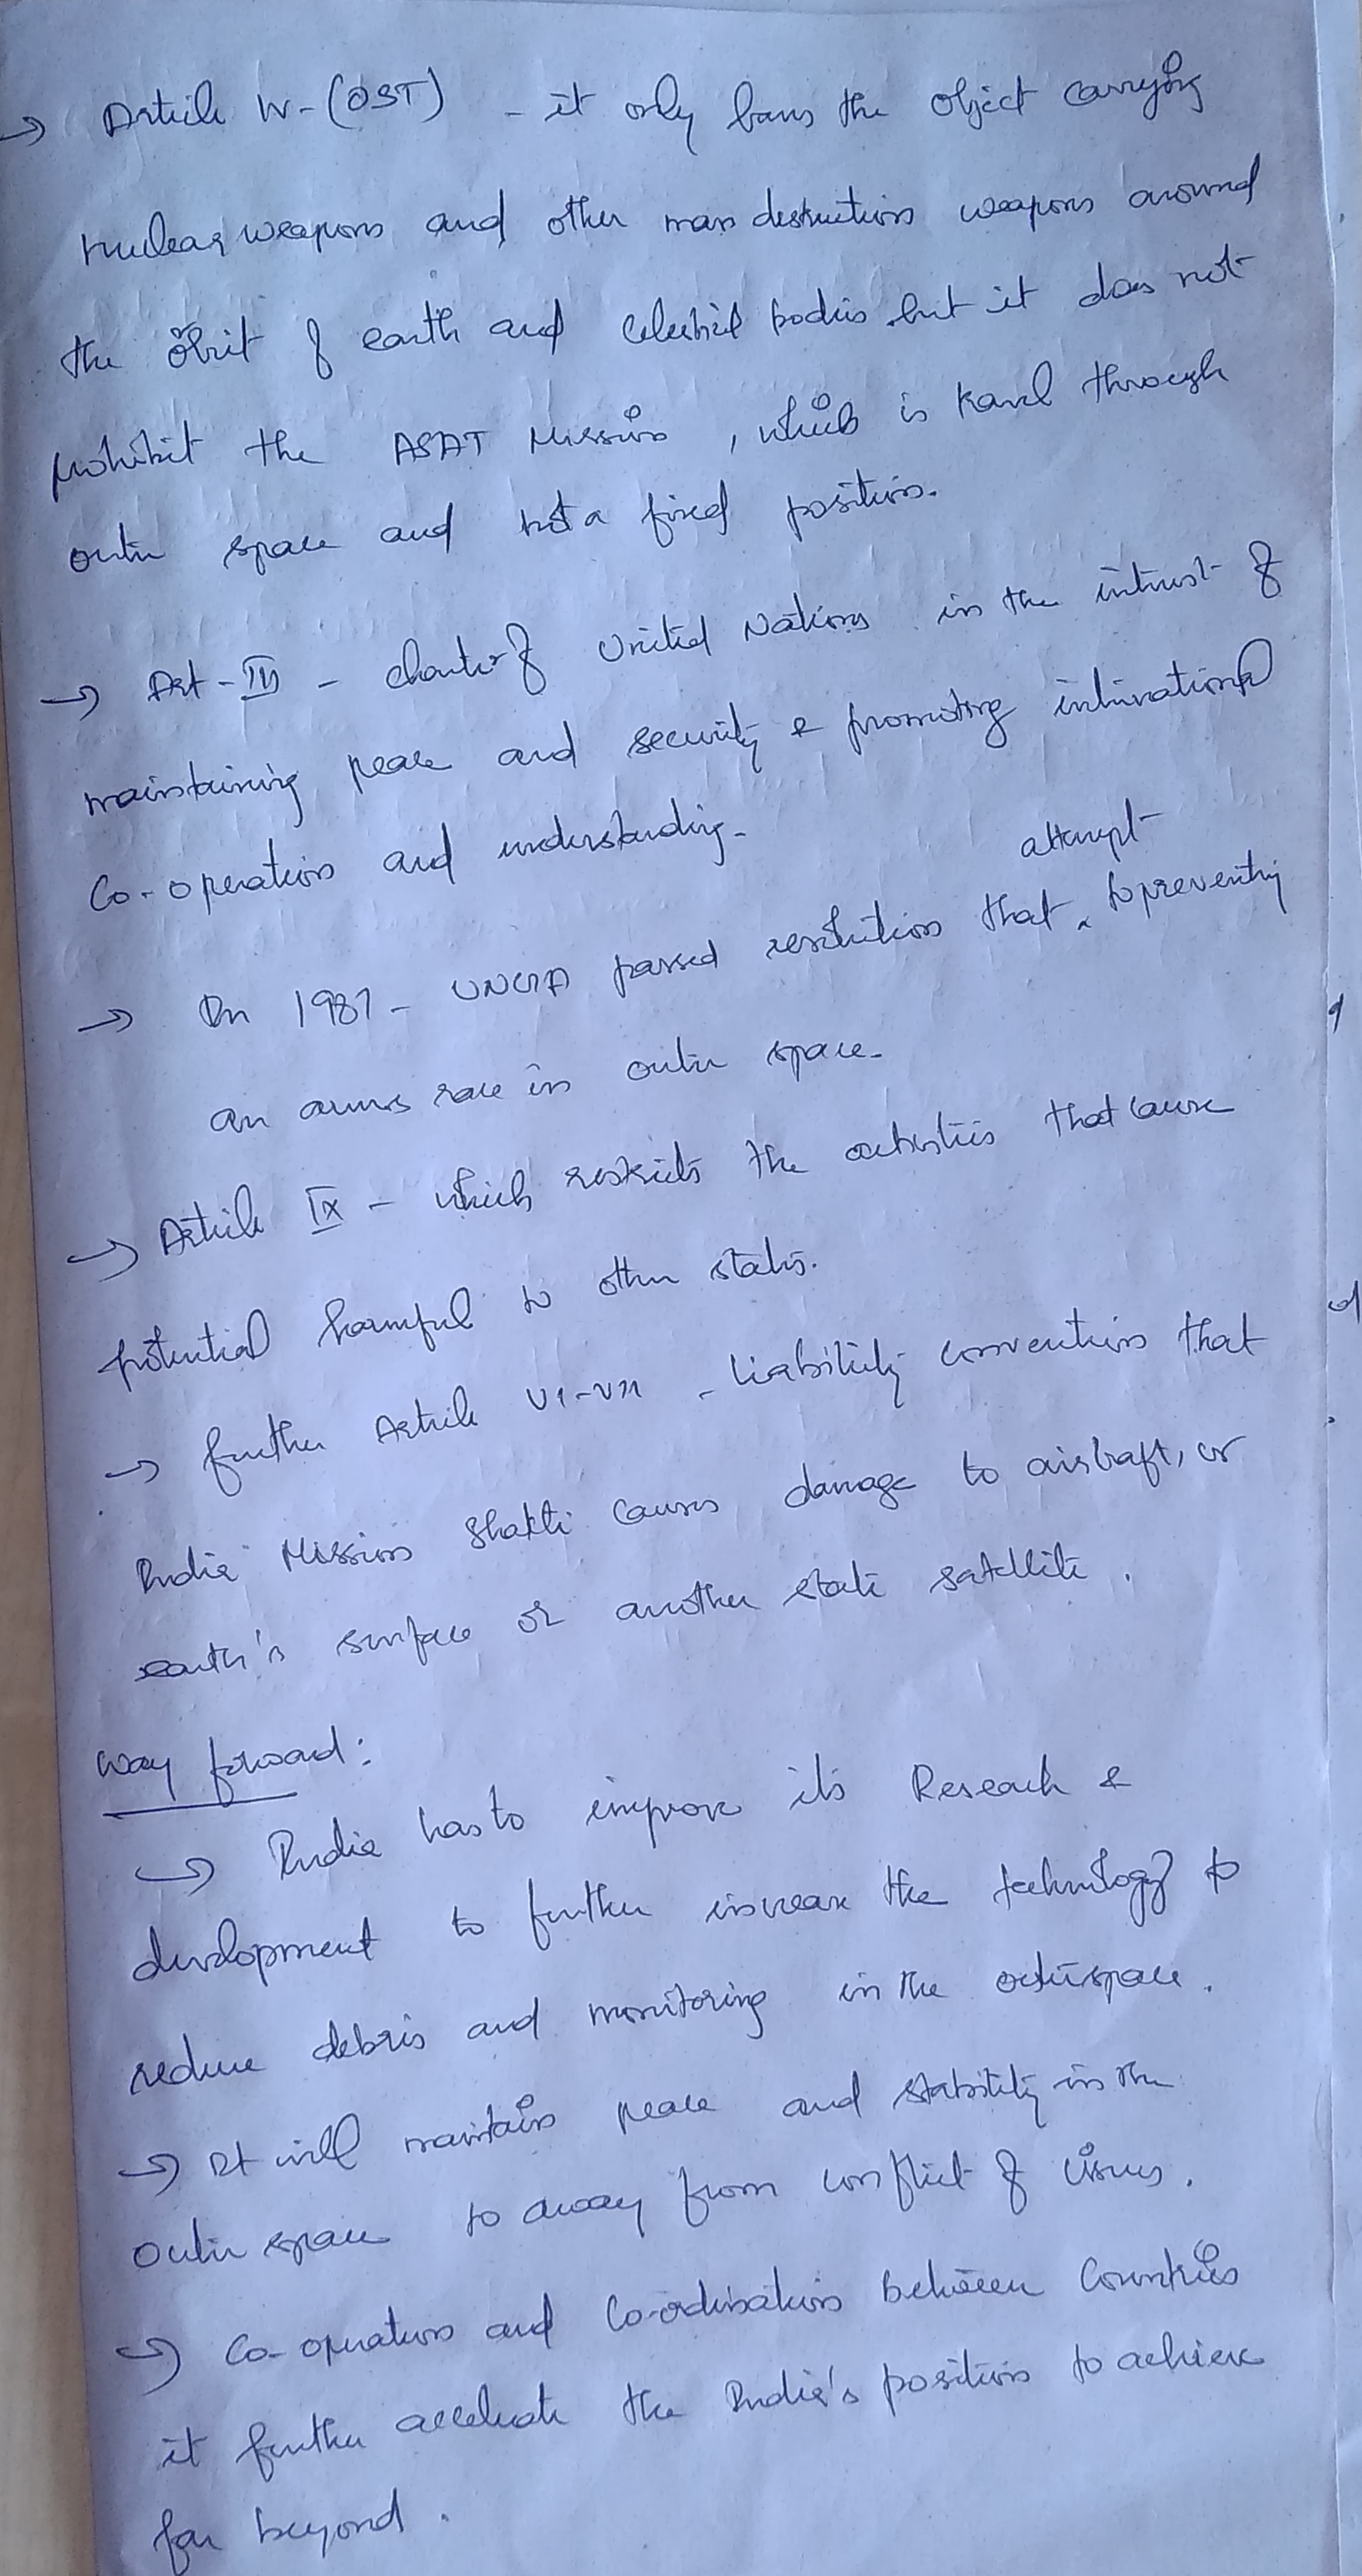 → Article IV - (OST) - it only bans the object carrying
nuclear weapons and other mass destruction weapons around
the orbit of earth and celestial bodies but it does not
prohibit the ASAT Mission, which is travel through
outer space and not a fixed position.
→ Art - III - charter of United Nations in the intrest of
maintaining peace and security & promoting international
Co-operation and understanding.
attempt
→ In 1981 - UNGA passed resolution that ^ to preventing
an arms race in outer space.
→ Article IX - which restricts the activities that cause
potential harmful to other states.
→ further Article VI-VII - liability convention that
India Mission Shakti causes damage to aircraft, or
earth's surface or another state satellite.
Way forward:
→ India has to improve its Research &
development to further increase the technology to
reduce debris and monitoring in the outerspace.
→ It will maintain peace and stability in the
outer space to away from conflict of issues.
→ Co-operation and Co-ordination between Countries
it further accelerate the India's position to achieve
far beyond.